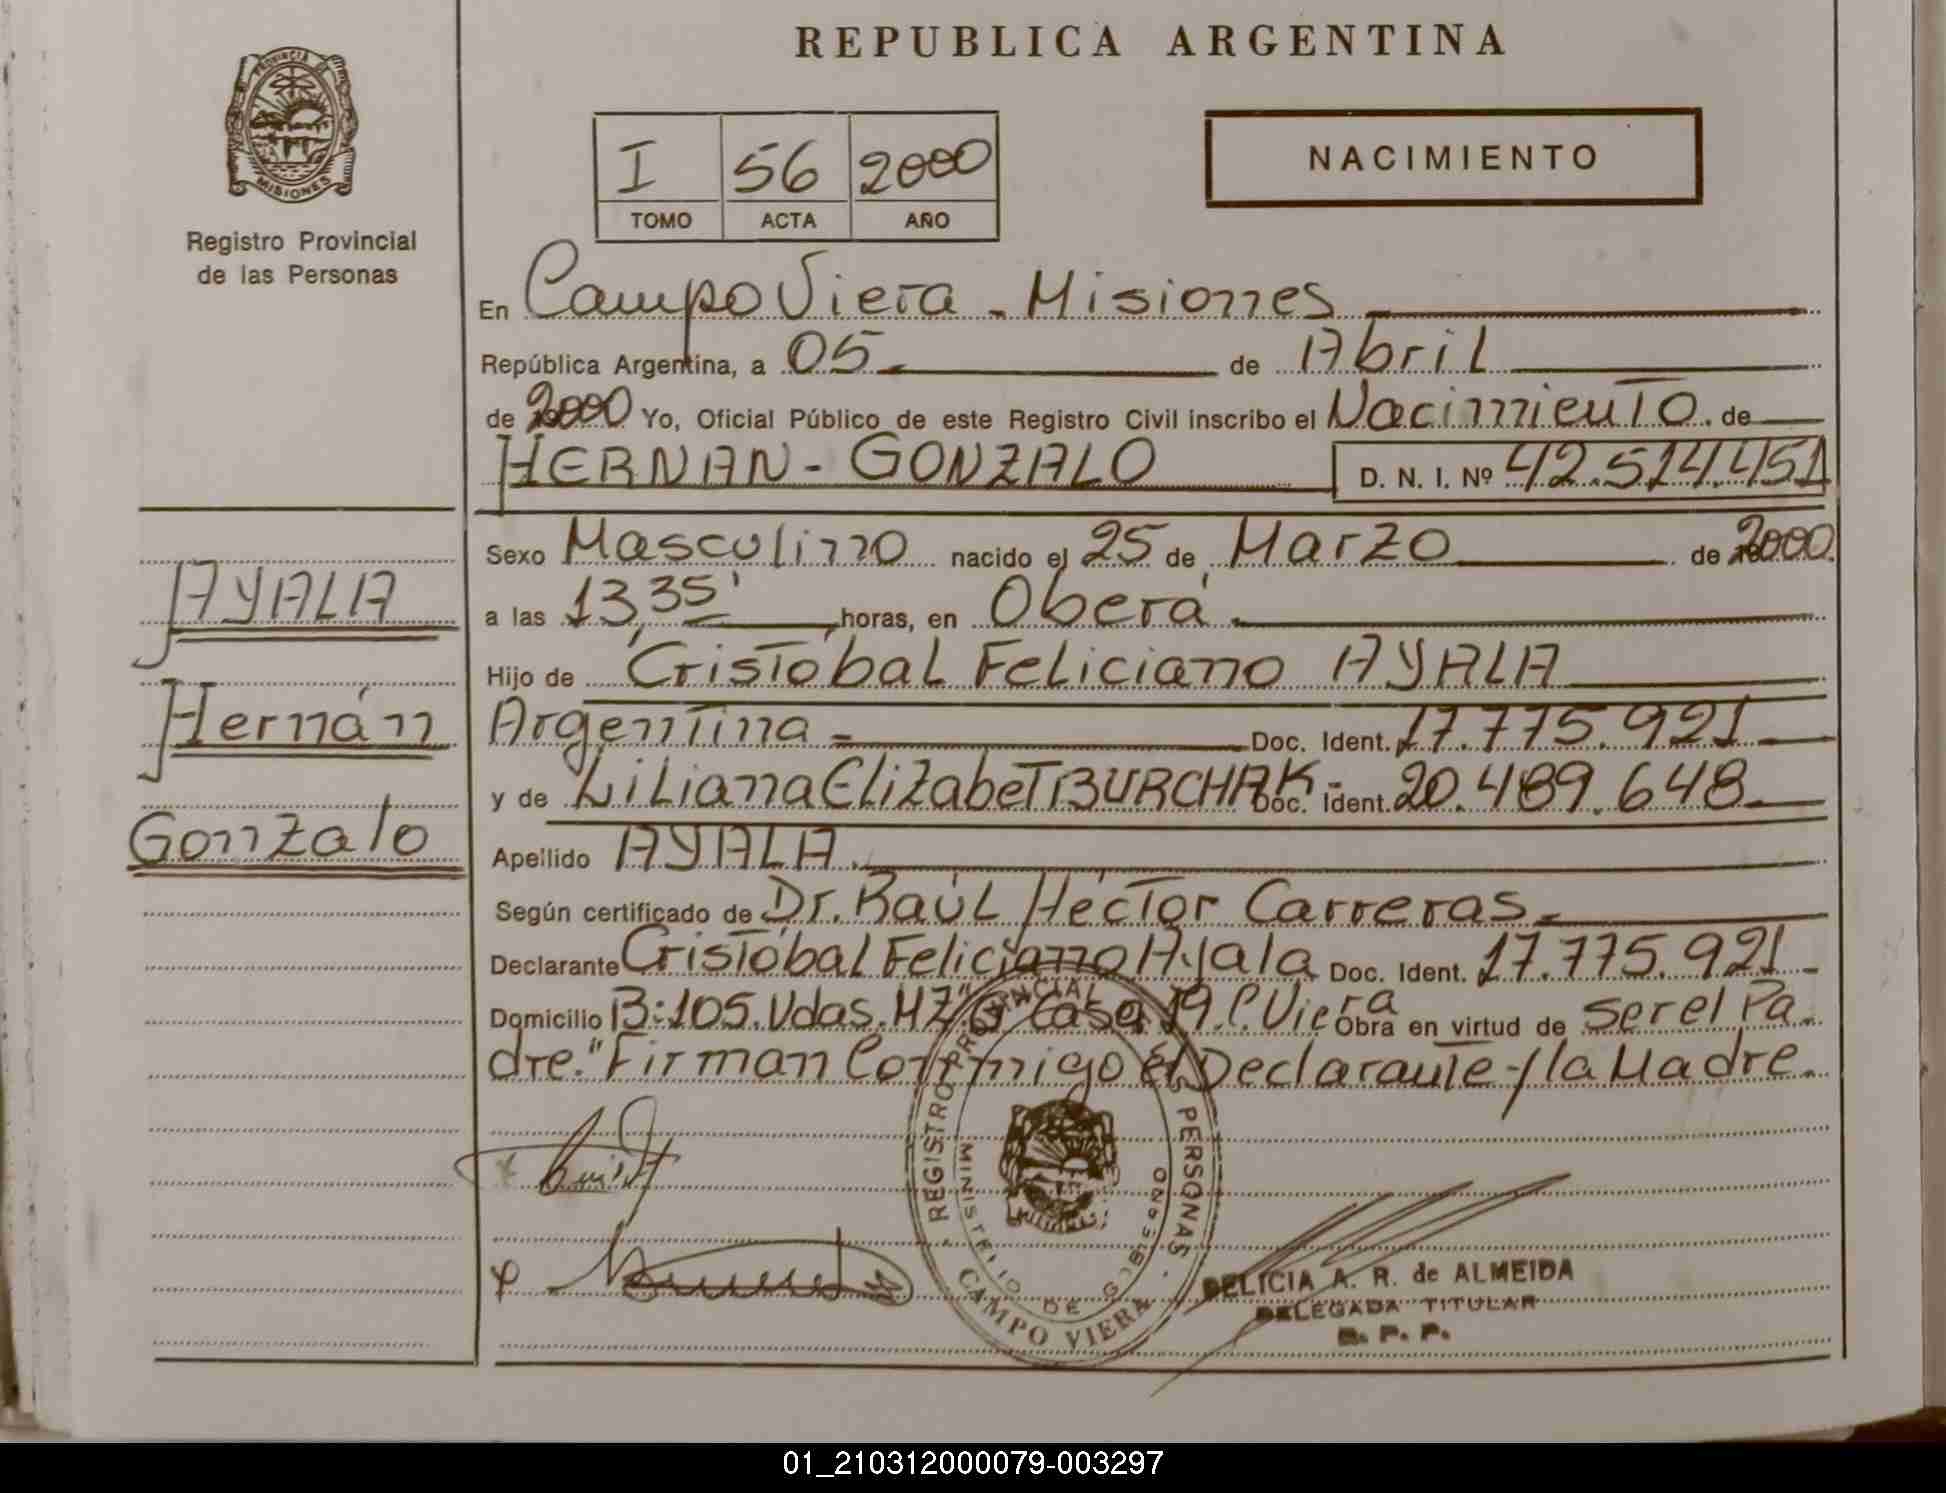 REPUBLICA ARGENTINA
PROVINCIA DE
MISIONES
Registro Provincial
de las Personas
I 56 2000
TOMO ACTA AÑO
NACIMIENTO
En Campo Viera - Misiones
República Argentina, a 05 de Abril
de 2000 Yo, Oficial Público de este Registro Civil inscribo el Nacimiento de
HERNAN - GONZALO D. N. I. Nº 42.514.451
Sexo Masculino nacido el 25 de Marzo de 2000.
AYALA
a las 13,35' horas, en Oberá
Hijo de Cristóbal Feliciano AYALA
Hernán
Argentina - Doc. Ident. 17.775.921
y de Liliana Elizabet BURCHAK - Doc. Ident. 20.489.648
Gonzalo
Apellido AYALA
Según certificado de Dr. Raúl Héctor Carreras
Declarante Cristóbal Feliciano Ayala Doc. Ident. 17.775.921 -
Domicilio B: 105. Vdas. MZ Casa 19. C. Viera Obra en virtud de ser el Pa-
dre." Firman Conmigo el Declarante y la Madre.
REGISTRO PROVINCIAL PERSONAS
MINISTERIO DE GOBIERNO
CAMPO VIERA
DELICIA A. R. de ALMEIDA
DELEGADA TITULAR
R. P. P.
01_210312000079-003297